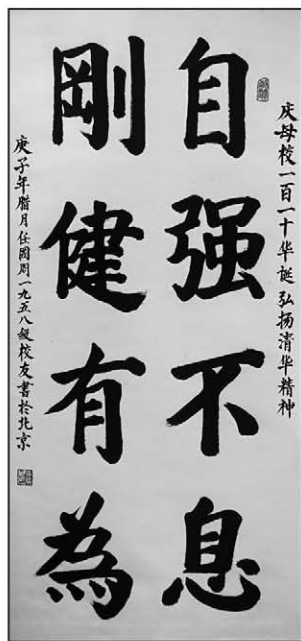 庆母校一百一十华诞弘扬清华精神
自强不息
剛健有為
庚子年腊月任國周一九五八級校友書於北京